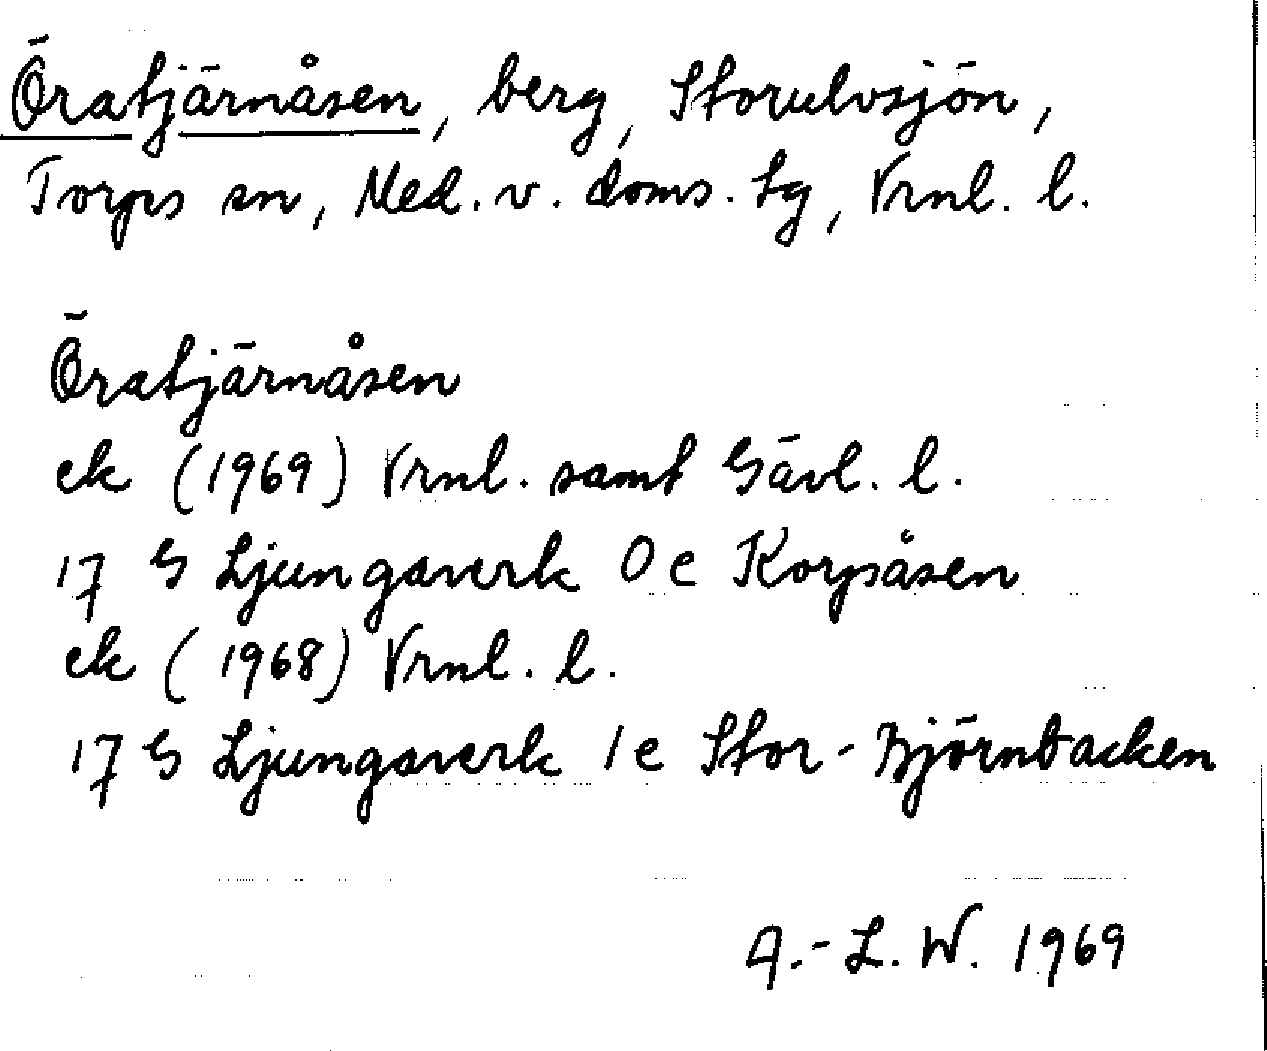 Öratjärnåsen, berg, Storulvsjön,
Torps sn, Med. v. doms. tg, Vrnl. l.
Öratjärnåsen
ek (1969) Vrnl. samt Gävl. l.
17 G Ljungaverk 0 e Korpåsen
ek (1968) Vrnl. l.
17 G Ljungaverk 1 e Stor-Björnbacken
A.-L. W. 1969